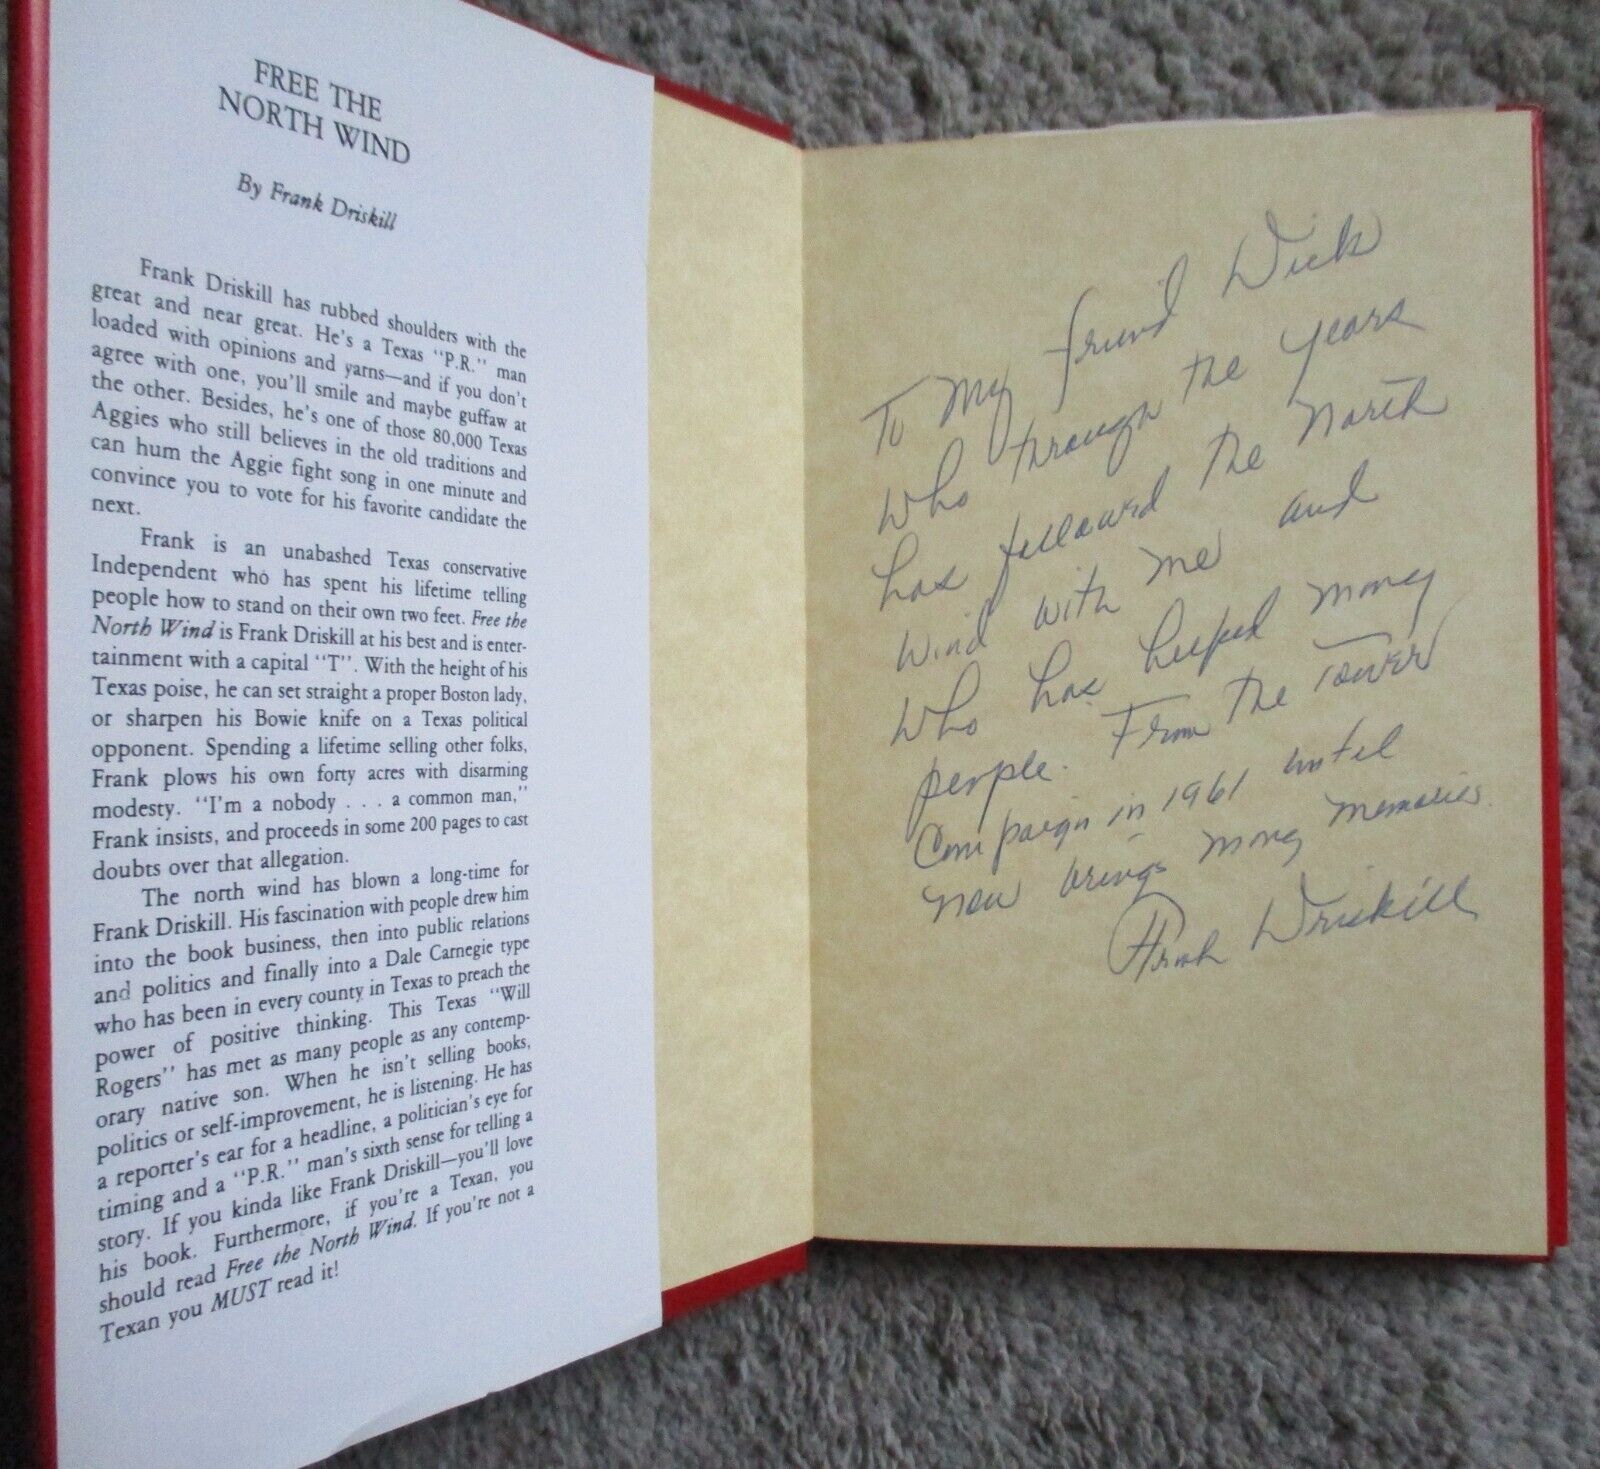 FREE THE
NORTH WIND
By Frank Driskill
Frank Driskill has rubbed shoulders with the
great and near great. He's a Texas "P.R." man
loaded with opinions and yarns—and if you don't
agree with one, you'll smile and maybe guffaw at
the other. Besides, he's one of those 80,000 Texas
Aggies who still believes in the old traditions and
can hum the Aggie fight song in one minute and
convince you to vote for his favorite candidate the
next.
Frank is an unabashed Texas conservative
Independent who has spent his lifetime telling
people how to stand on their own two feet. Free the
North Wind is Frank Driskill at his best and is enter-
tainment with a capital "T". With the height of his
Texas poise, he can set straight a proper Boston lady,
or sharpen his Bowie knife on a Texas political
opponent. Spending a lifetime selling other folks,
Frank plows his own forty acres with disarming
modesty. "I'm a nobody . . . a common man,"
Frank insists, and proceeds in some 200 pages to cast
doubts over that allegation.
The north wind has blown a long-time for
Frank Driskill. His fascination with people drew him
into the book business, then into public relations
and politics and finally into a Dale Carnegie type
who has been in every county in Texas to preach the
power of positive thinking. This Texas "Will
Rogers" has met as many people as any contemp-
orary native son. When he isn't selling books,
politics or self-improvement, he is listening. He has
a reporter's ear for a headline, a politician's eye for
timing and a "P.R." man's sixth sense for telling a
story. If you kinda like Frank Driskill—you'll love
his book. Furthermore, if you're a Texan, you
should read Free the North Wind. If you're not a
Texan you MUST read it!
To My friend Dick
Who through the years
has followed the North
Wind with me and
Who has helped many
people. From the Tower
Campaign in 1961 until
now brings many memories.
Frank Driskill